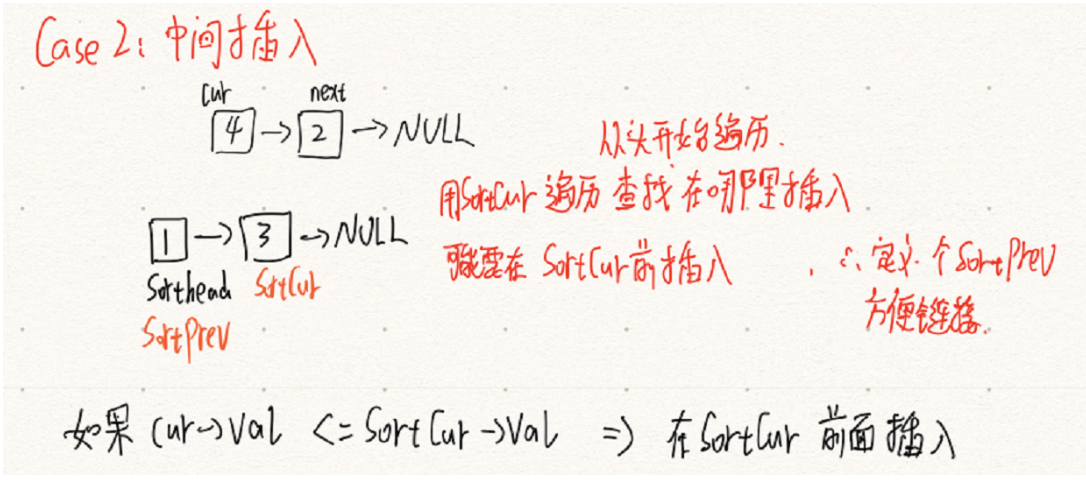 Case 2: 中间插入
cur next
4 → 2 → NULL
从头开始遍历.
用SortCur 遍历 查找 在哪里插入
1 → 3 → NULL
要在 SortCur前插入 , ∴ 定义个SortPrev
Sorthead SortCur
方便链接.
SortPrev
如果 cur->val <= SortCur->val => 在SortCur 前面插入